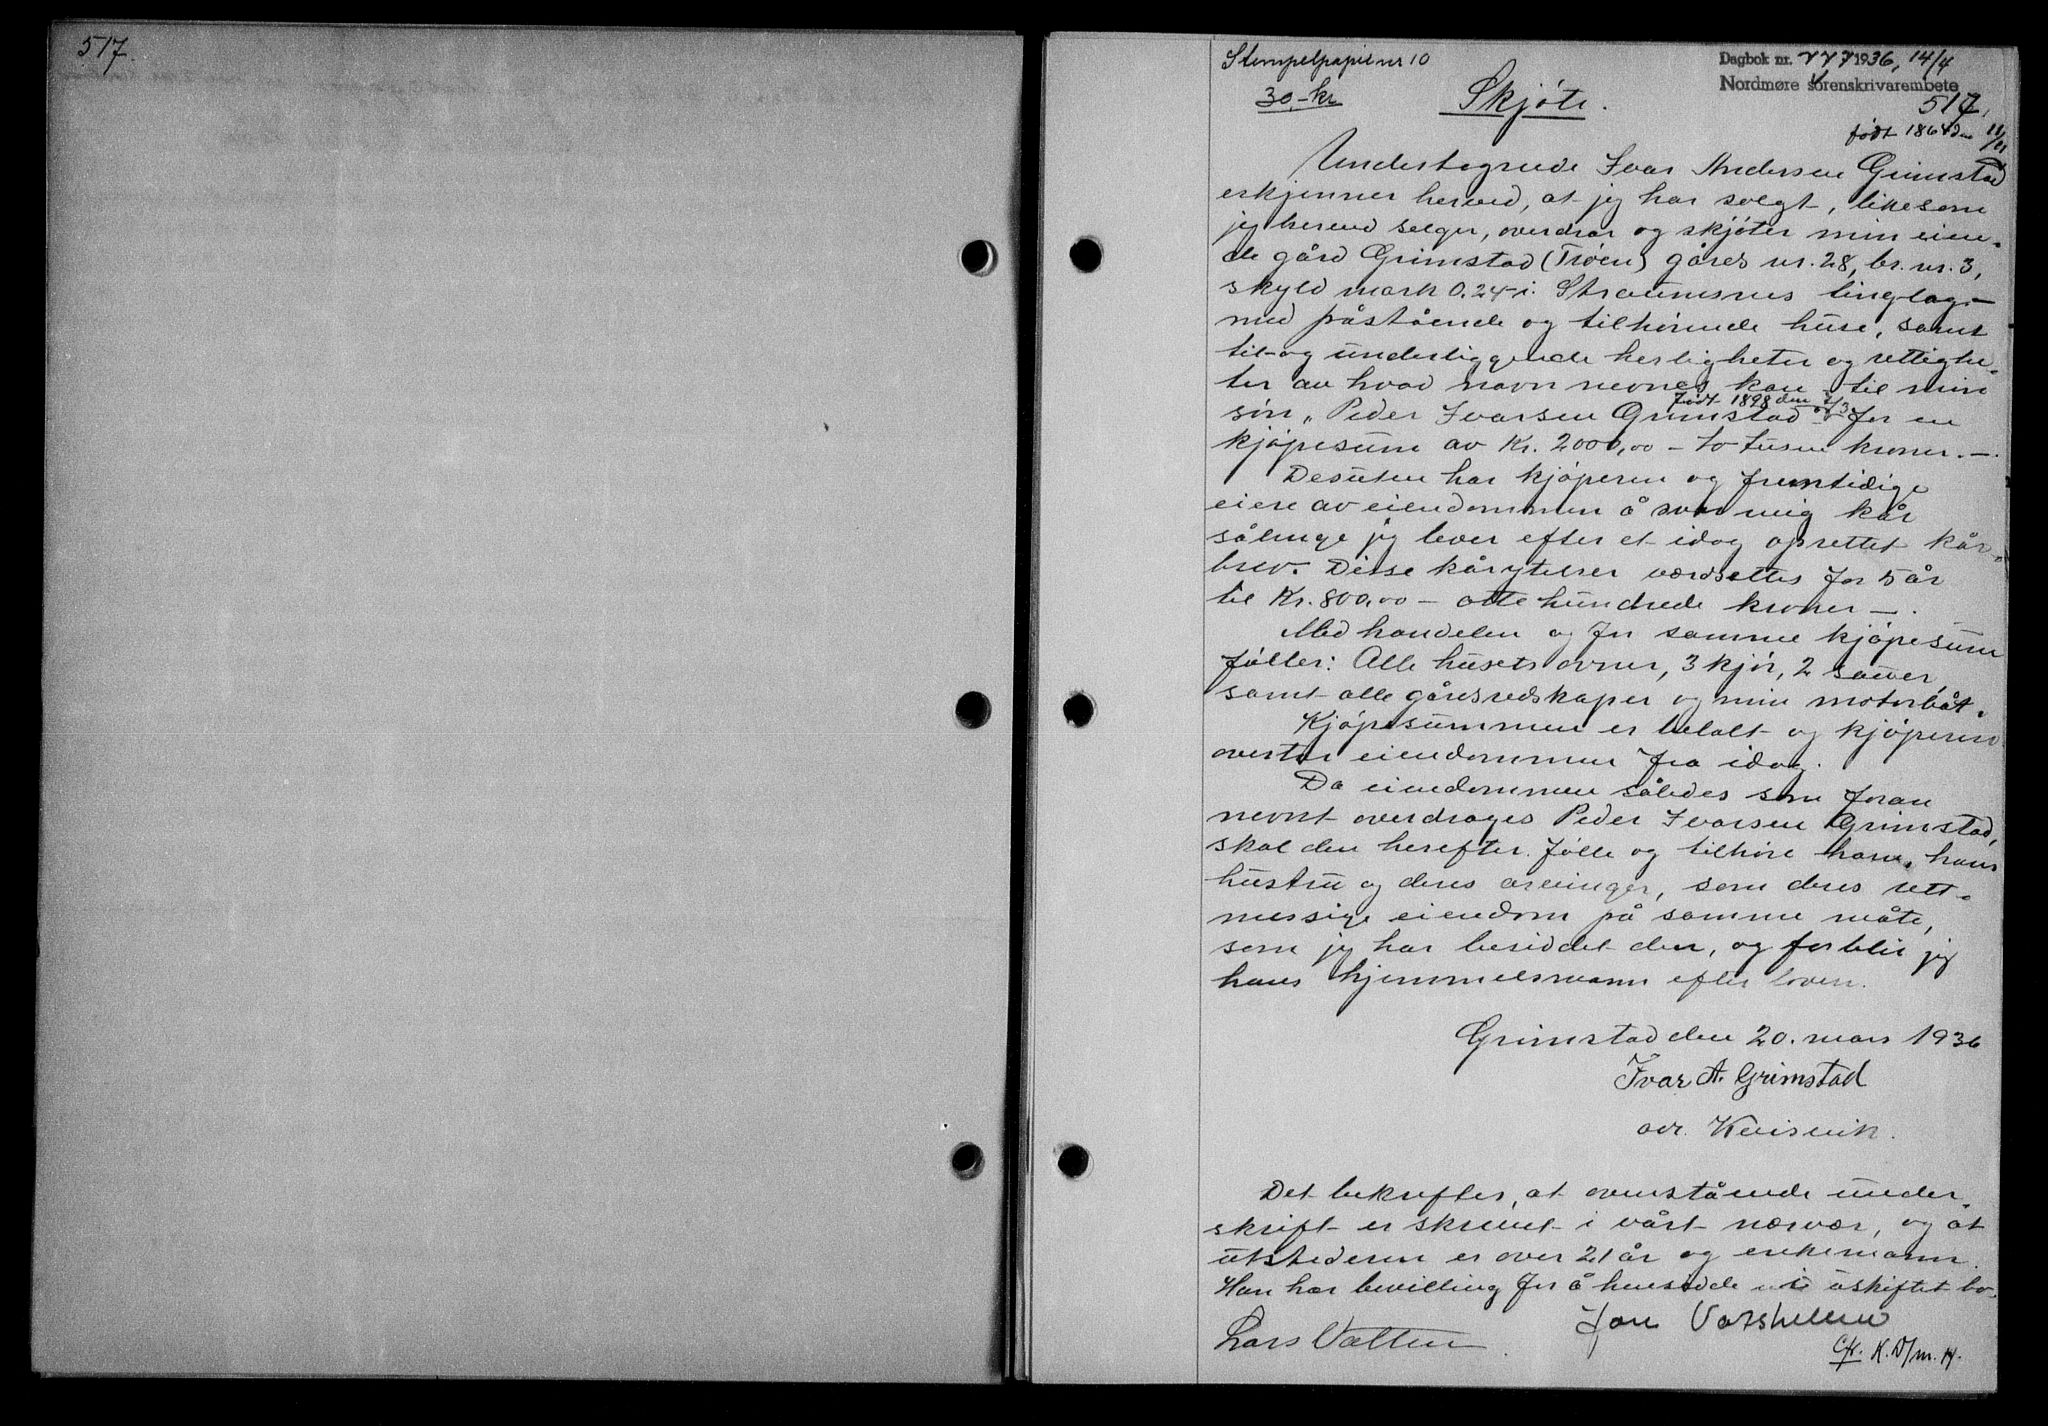 517.
Stempelpapir nr 10
30,- kr
Dagbok nr. 777 1936, 14/4
Nordmøre sorenskrivarembete
517.
Skjøte.
født 1864 den 11/11
Undertegnede Ivar Andersen Grimstad
erkjenner herved, at jeg har solgt, likesom
jeg herved selger, overdrar og skjøter min eien-
de gård Grimstad (Trøen) gårds nr. 28, br. nr. 3,
skyld mark 0.24 i Straumsnes tinglag -
med påstående og tilhørende huse, samt
til- og underliggende herligheter og rettighe-
ter av hvad navn nevnes kan - til min
født 1898 den
søn „ Peder Ivarsen Grimstad - for en
kjøpesum av Kr. 2000,00 - to tusen kroner. -.
Desuten har kjøperen og fremtidige
eiere av eiendommen å svare mig kår
sålenge jeg lever efter et idag oprettet kår-
brev. Disse kårytelser værdsettes for 5 år
til Kr. 800,00 - otte hundrede kroner -.
Med handelen og for samme kjøpesum
føller: Alle husets ovner, 3 kjør, 2 sauer,
samt alle gårdsredskaper og min motorbåt.
Kjøpesummen er betalt og kjøperen
overtar eiendommen fra idag.
Da eiendommen således som foran
nevnt overdrages Peder Ivarsen Grimstad,
skal den herefter følle og tilhøre ham, hans
hustru og deres arvinger, som deres rett-
messige eiendom på samme måte,
som jeg har besiddet den, og forblir jeg
hans hjemmelsmann efter loven.
Grimstad den 20. mars 1936
Ivar A. Grimstad
adr. Kvisvik.
Det bekreftes, at ovenstående under-
skrift er skrevet i vårt nærvær, og at
utstederen er over 21 år og enkemann.
Han har bevilling for å hensidde i uskiftet bo.
Jon Vaagshelm
Lars Vatten
Cfr. K. D/m. H.